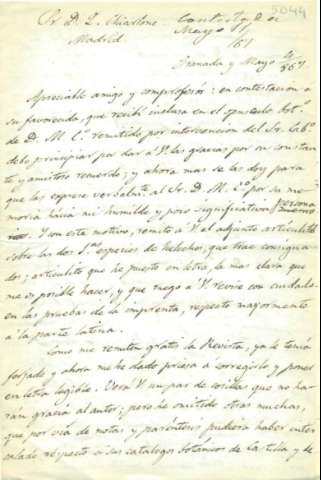 5044
Sr. D. L. Chiarlone. Contestada
Madrid Mayo /61
Granada y Mayo 4/861
Apreciable amigo y comprofesor: en contestacion a
su favorecida, que recibí inclusa en el opusculo botº
de D. M. Cº remitido por intervencion del Sr.
debo principiar por dar a V. las gracias por su constan
te y amistoso recuerdo; y ahora mas se las doy para
que las esprese verbalmte al Sr. D. M. Cº por su me
moria hácia mi humilde y poco significativa persona
Y con este motivo, remito a V. el adjunto articulito
sobre las dos especies de helechos, que trae consigna
dos; articulito que he puesto en letra, la mas clara que
me es posible hacer, y que ruego a V. revise con cuidado
en las pruebas de la imprenta, respecto mayormente
a la parte latina.
Como me remiten gratis la Revista, ya le tenia
forjado y ahora me he dado priesa a corregirlo y poner
en letra legible. Verá V. un par de cosillas que no ha-
rán gracia al autor; pero he omitido otras muchas,
que por via de notas y parentesis pudiera haber inter
calado respecto a sus catalogos botánicos de Castilla y de